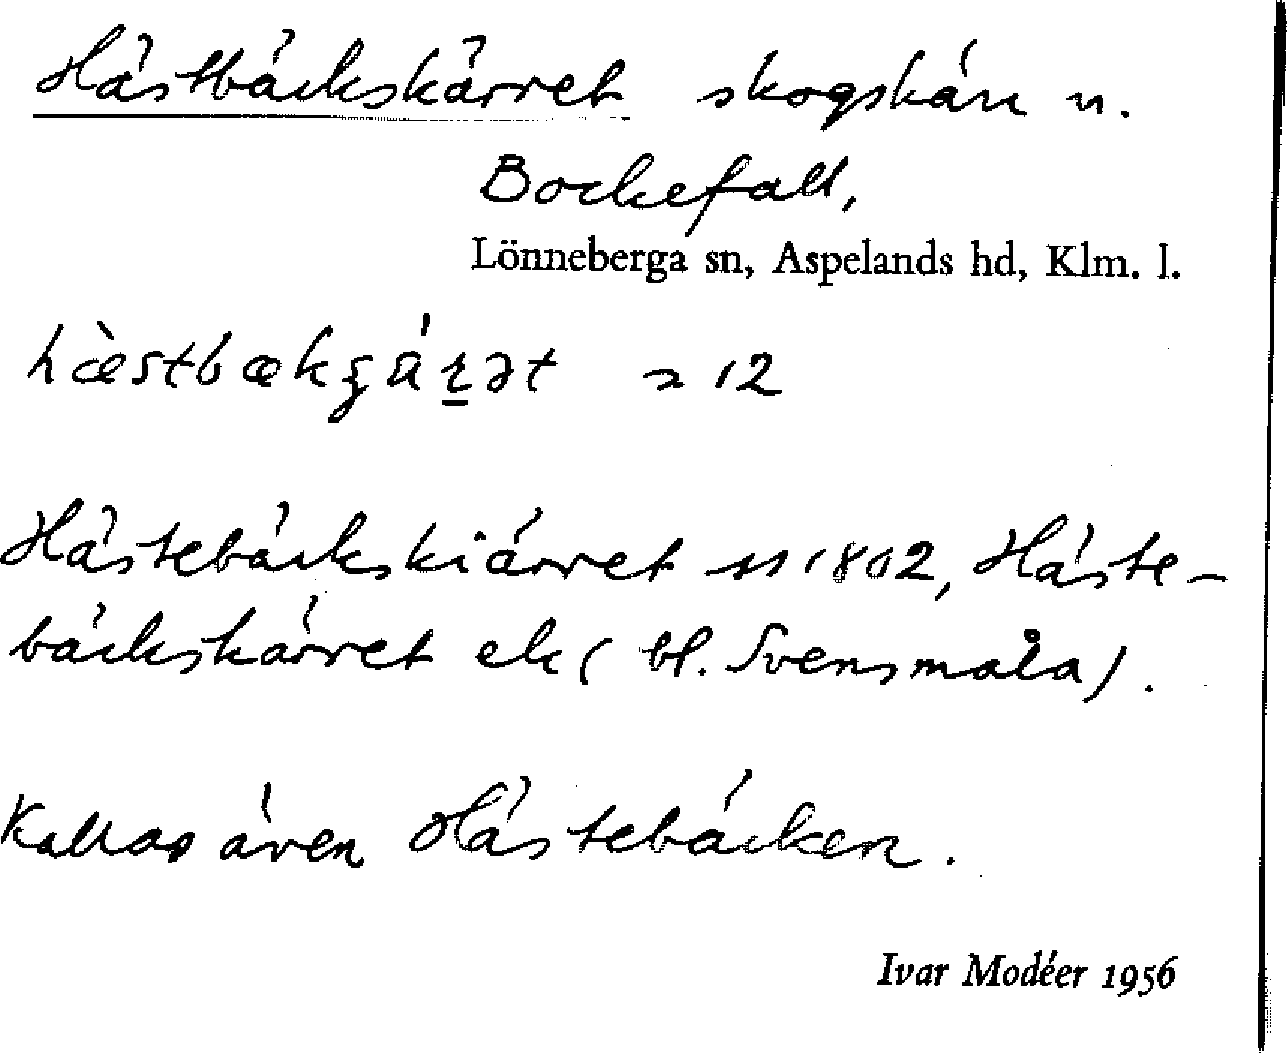 Hästbäckskärret skogskärr n.
Bockefall,
Lönneberga sn, Aspelands hd, Klm. l.
hæ̀stbækʂáɽət 12
Hästebäckskiärret 1802, Häste-
bäckskärret ek (bl. Svensmåla).
Kallas även Hästebäcken.
Ivar Modéer 1956